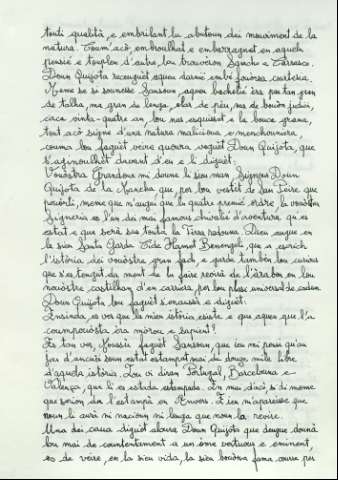 touti qualità, e embrilant la abutour dei mouiment de la
natura. Coum'acò, embroulhat e embarragnat en aquch
pensié e touplen d'autre lou trouveron Sancho e Carrasco.
Doun Quijota recaupèt aqueu darrié embé fouorsa courtesia.
Meme se si sounesse Sansoun, aqueu bachelié èra pas tan gran
de talha, ma gran de lenga, clar de pèu, ma de bouon judici,
caca vinta-quatre an, lou nas esquissat e la bouca granda,
tout acò signe d'una natura maliciousa e menchounaira,
couma lou faguèt veire quoura veguèt Doun Quijota, que
s'aginoulhèt davant d'eu e li diguèt:
Vouòstra Grandour mi doune li siéu man Signour Doun
Quijota de la Mancha que, per lou vestit de San Peire que
pouòrti, meme que n'augui que lu quatre premié ordre, la vouòstra
Signouria es l'un dai mai famous chivalié d'aventura qu'es
estat e que serà sus touta la Terra redouna. Dieu augue en
la siéu Santa Garda Cide Hamet Benengeli, que a escrich
l'istòria dei vouòstre gran fach, e garde tamben lou curious
que s'es tengut da ment de la faire revirà de l'àrabou en lou
nouòstre castilhan d'en carriera per lou plesi universal de cadun.
Doun Quijota lou faguèt s'enaussà e diguèt:
Ensinda, es ver que la miéu istòria esiste e que aqueu que l'a
coumpouòsta èra mòrou e sapient?
Es tan ver, Moussù faguèt Sansoun, que ièu mi pensi qu'au
jou d'ancuèi soun estat estampat mai de douge mila libre
d'aquela istòria. Lou vi diran Pourtugal, Barcelouna e
Valença, que li es estada estampada. En mai d'acò si di meme
que serion da l'estampà en Anvers. E ièu m'apareisse que
noun li aurà ni nacioun ni lenga que noun la revire.
Una dei causa diguèt aloura Doun Quijota que deugue dounà
lou mai de countentament a un òme vertuous e eminent,
es de veire, en la siéu vida, la siéu bouòna fama courre per